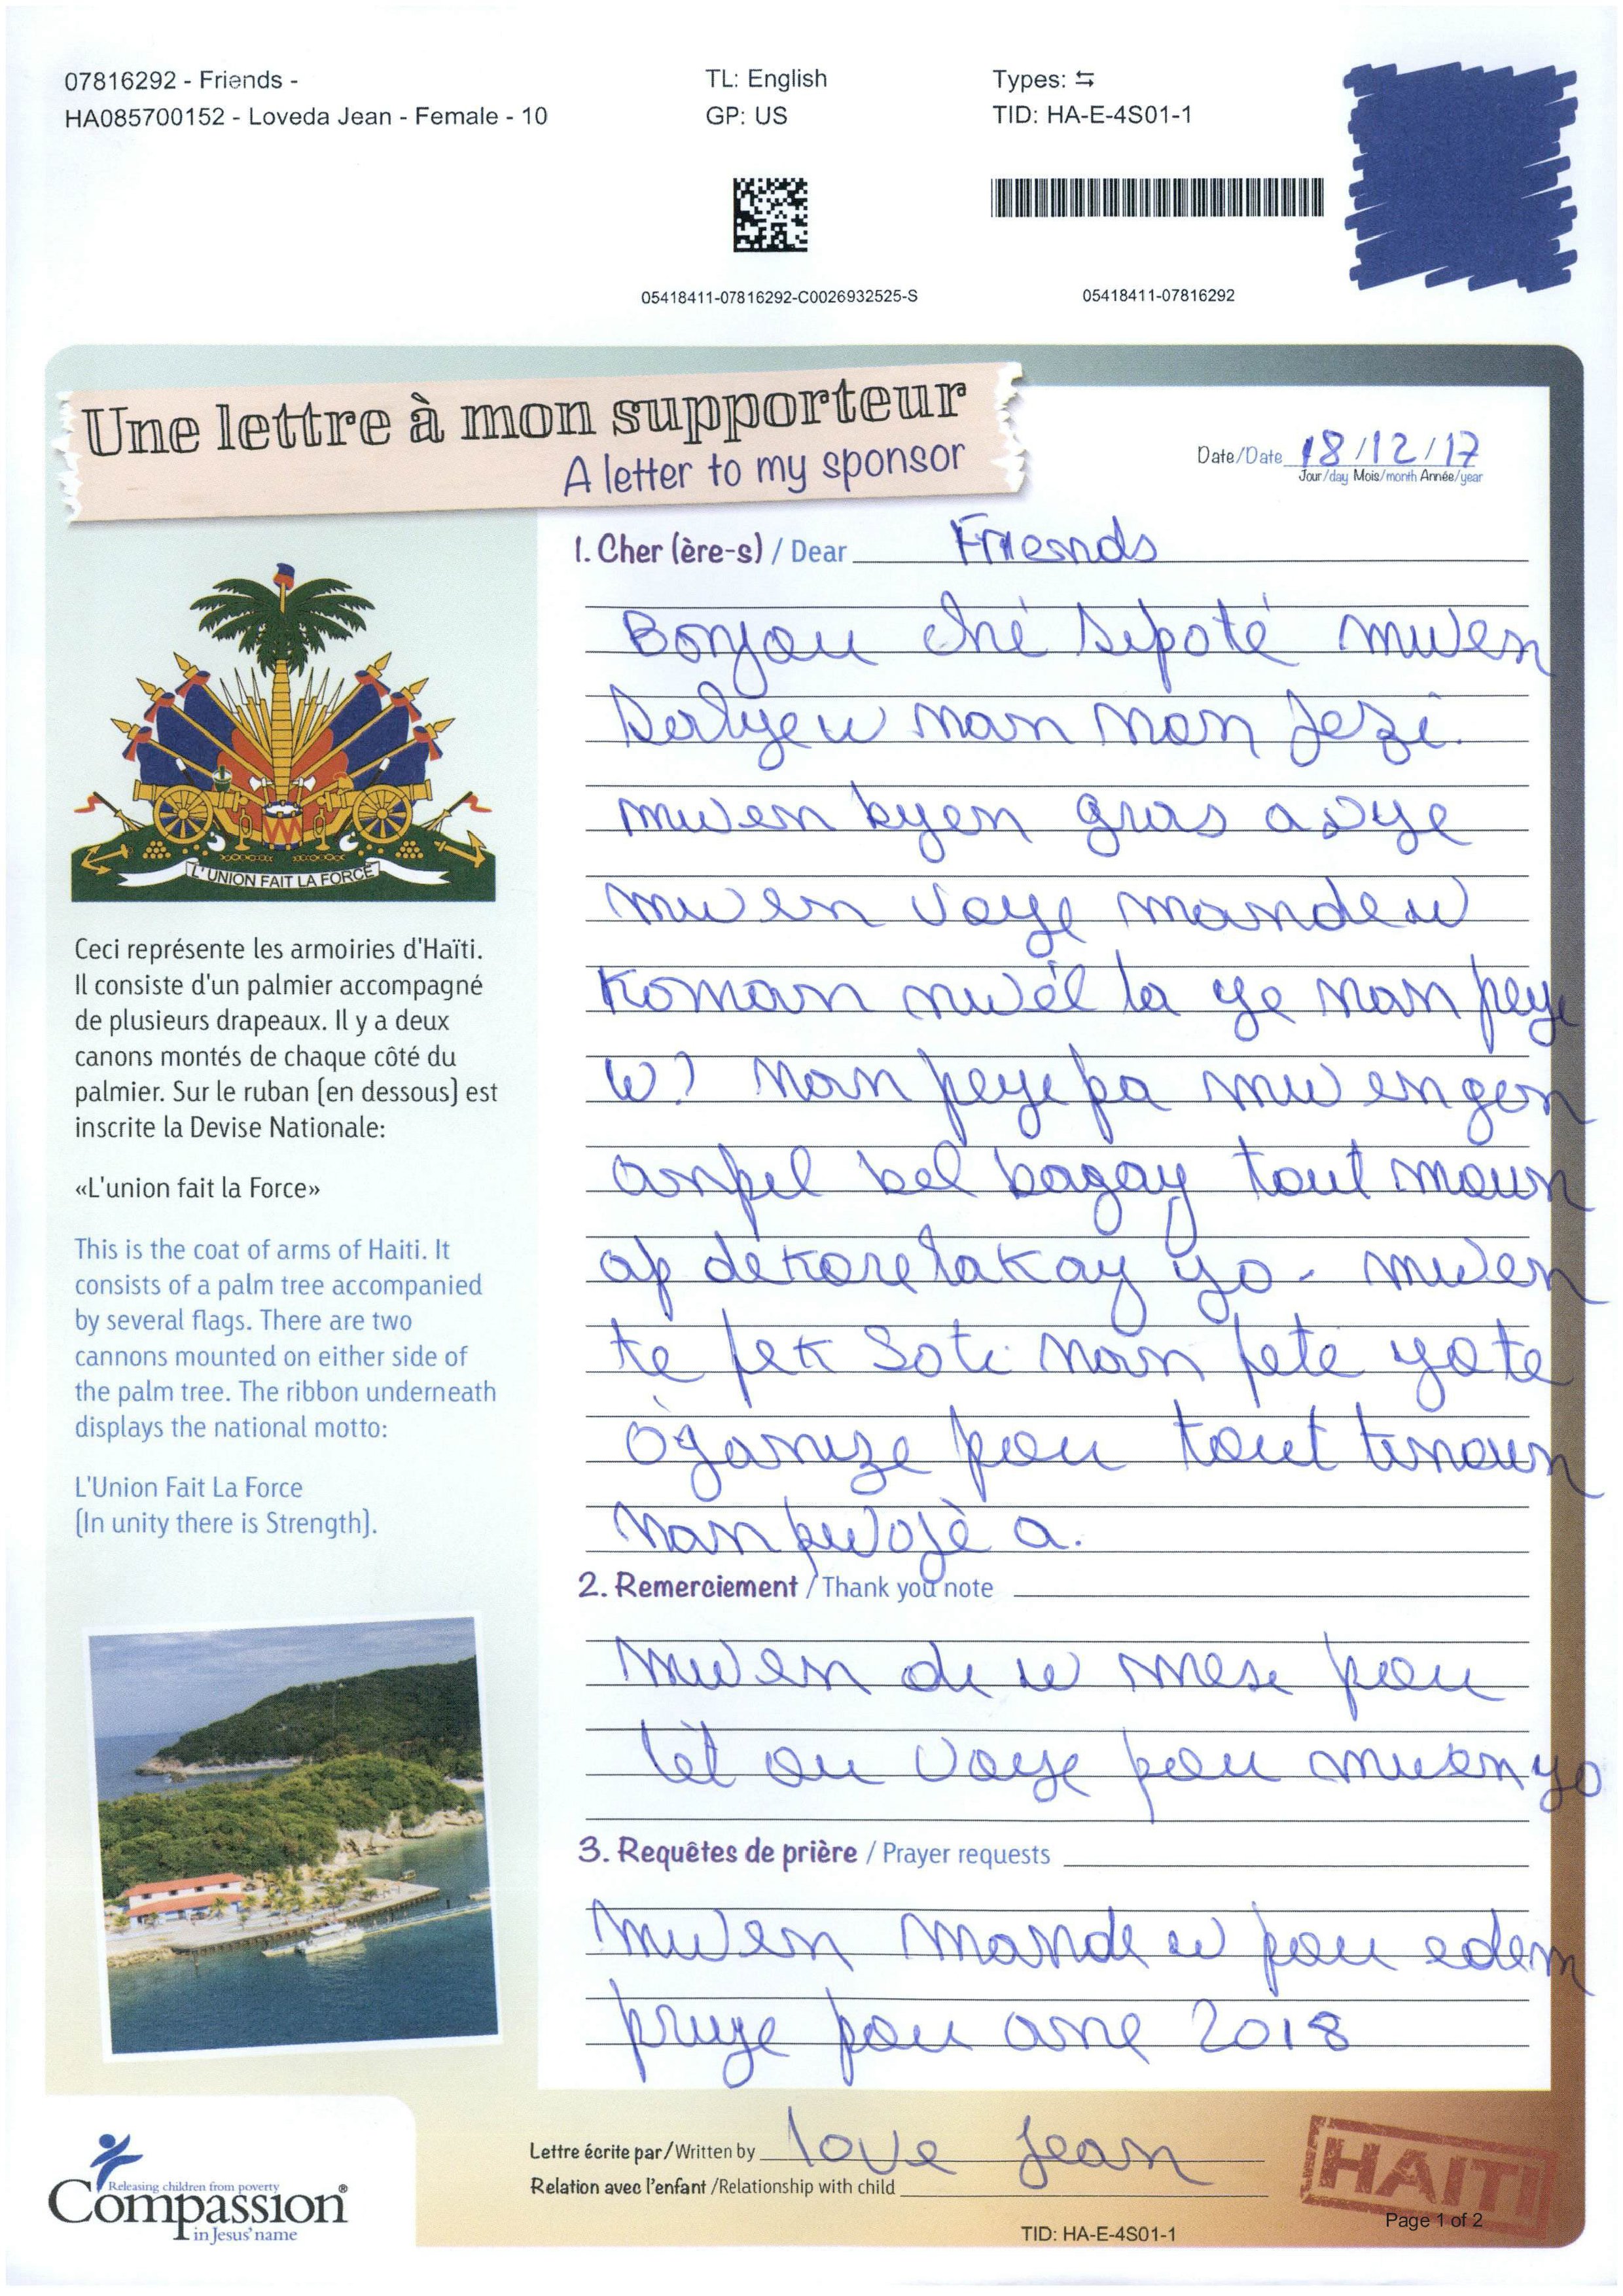 07816292 - Friends -
HA085700152 - Loveda Jean - Female - 10
TL: English
GP: US
Types: ⇆
TID: HA-E-4S01-1
05418411-07816292-C0026932525-S
05418411-07816292
Une lettre à mon supporteur
A letter to my sponsor
Date/Date 18/12/17
Jour/day Mois/month Année/year
L'UNION FAIT LA FORCE
Ceci représente les armoiries d'Haïti.
Il consiste d'un palmier accompagné
de plusieurs drapeaux. Il y a deux
canons montés de chaque côté du
palmier. Sur le ruban (en dessous) est
inscrite la Devise Nationale:
«L'union fait la Force»
This is the coat of arms of Haiti. It
consists of a palm tree accompanied
by several flags. There are two
cannons mounted on either side of
the palm tree. The ribbon underneath
displays the national motto:
L'Union Fait La Force
(In unity there is Strength).
1. Cher (ère-s) / Dear Friends
Bonjou ché sipoté mwen
Salye w nan non Jezi.
mwen byen gras a Dye
mwen voye mande w
Koman nwél la ye nan peye
w? Nan peye pa mwen gen
anpil bel bagay tout moun
ap dekore lakay yo. mwen
te fek Soti nan fete yo te
òganize pou tout timoun
nan pwojè a.
2. Remerciement / Thank you note
Mwen di w mesi pou
lèt ou voye pou mwen yo
3. Requêtes de prière / Prayer requests
Mwen mande w pou edem
priye pou ane 2018
Lettre écrite par/Written by love Jean
Relation avec l'enfant /Relationship with child
Releasing children from poverty
Compassion®
in Jesus' name
HAITI
Page 1 of 2
TID: HA-E-4S01-1